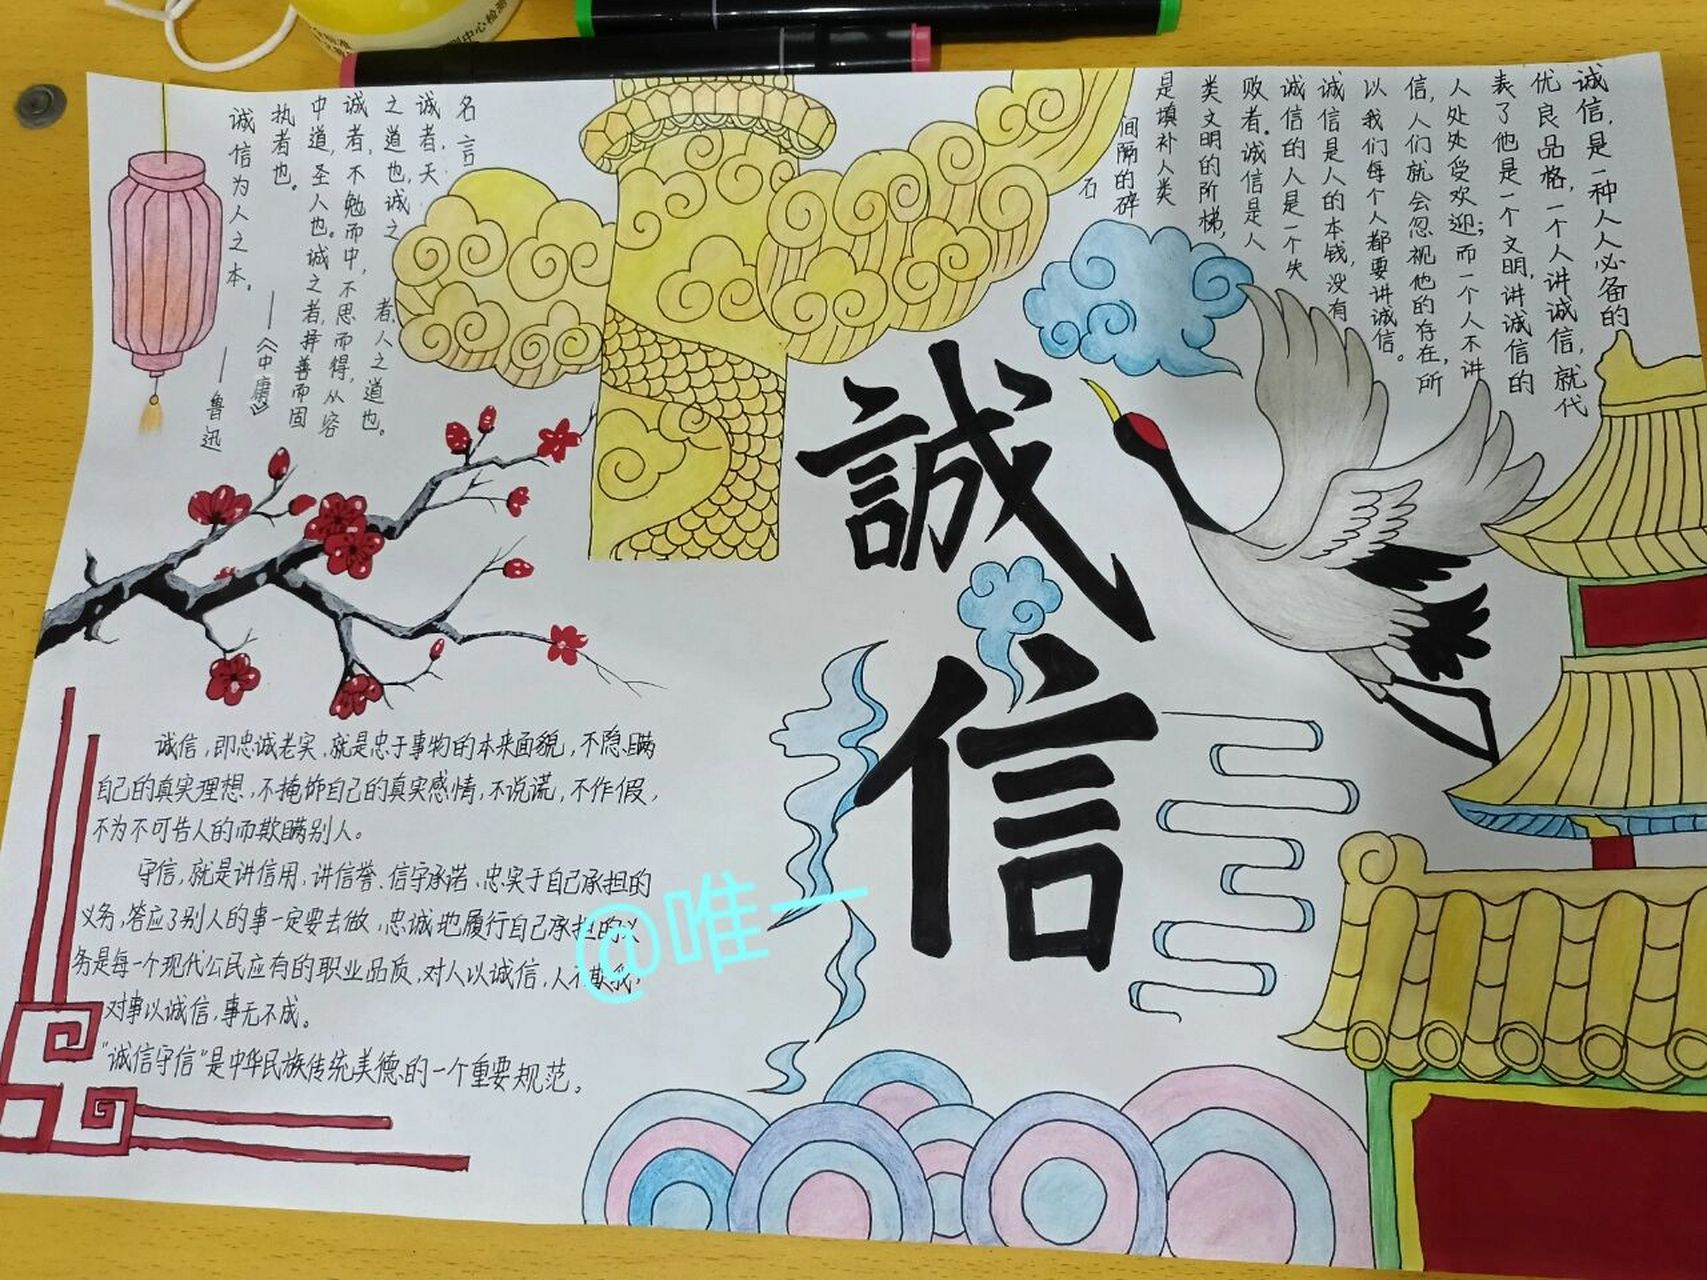 名言
诚者,天
之道也,诚之
者,人之道也。
诚者,不勉而中,不思而得,从容
中道,圣人也。诚之者,择善而固
执者也。
——《中庸》
诚信为人之本。
——鲁迅
诚信,是一种人人必备的
优良品格,一个人讲诚信,就代
表了他是一个文明,讲诚信的
人处处受欢迎;而一个人不讲
信,人们就会忽视他的存在,所
以我们每个人都要讲诚信。
诚信是人的本钱,没有
诚信的人是一个失
败者。诚信是人
类文明的阶梯,
是填补人类
间隔的碎
石
誠
信
诚信,即忠诚老实,就是忠于事物的本来面貌,不隐瞒
自己的真实理想,不掩饰自己的真实感情,不说谎,不作假,
不为不可告人的而欺瞒别人。
守信,就是讲信用,讲信誉、信守承诺、忠实于自己承担的
义务,答应了别人的事一定要去做,忠诚地履行自己承担的义
务是每一个现代公民应有的职业品质,对人以诚信,人不欺我,
对事以诚信,事无不成。
"诚信守信"是中华民族传统美德的一个重要规范。
@唯一